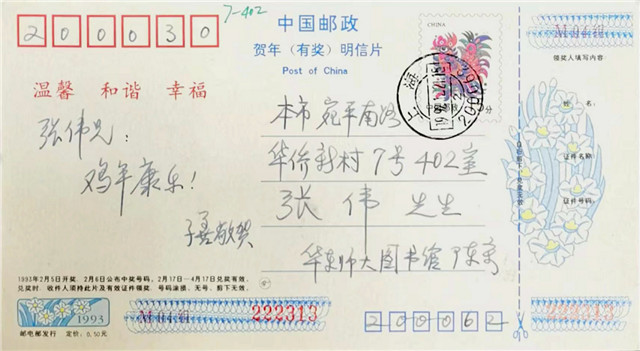 7-402
200030
中国邮政
贺年（有奖）明信片
Post of China
温馨 和谐 幸福
张伟兄：
鸡年康乐！
子善敬贺
本市宛平南路
华侨新村7号402室
张伟先生
华东师大图书馆 陈寄
上海
中国邮政
1993年2月5日开奖，2月6日公布中奖号码，2月17日—4月17日兑奖有效，
兑奖时，收件人须持此片及有效证件领奖，号码涂擦、无号、剪下无效。
1993
邮电部发行 定价：0.50元
222313
200062
领奖人填写内容
证件名称
证件号码
222313